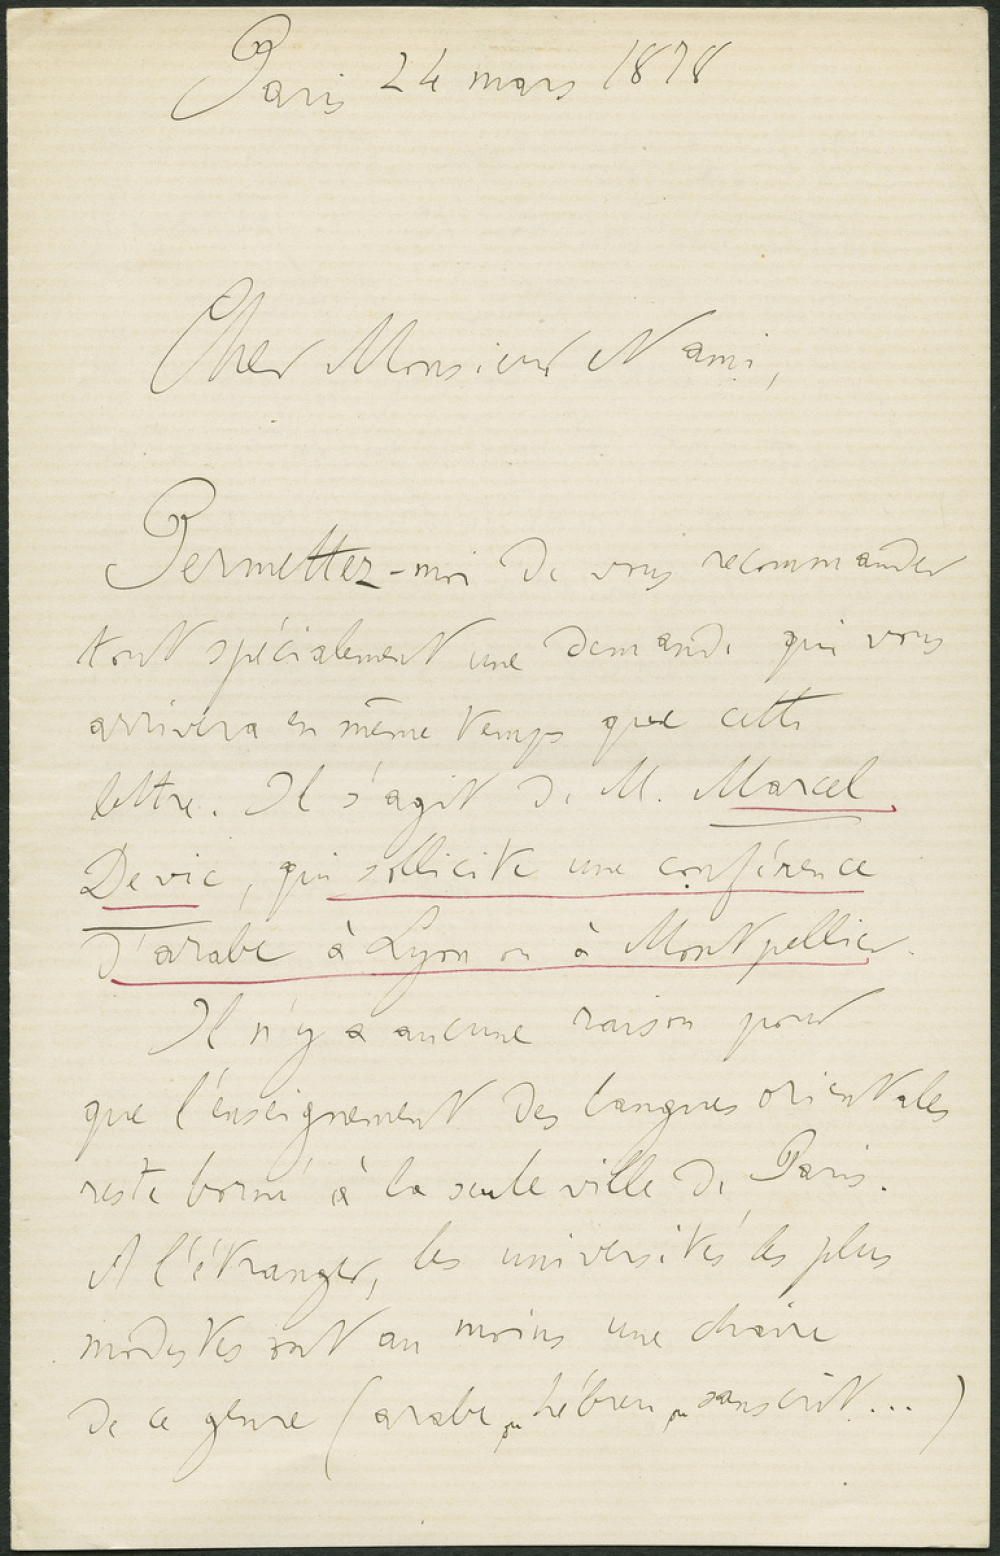 Paris 24 mars 1878
Cher Monsieur Nami,
Permettez-moi de vous recommander
tout spécialement une demande qui vous
arrivera en même temps que cette
lettre. Il s'agit de M. Marcel
Devic, qui sollicite une conférence
d'arabe à Lyon ou à Montpellier.
Il n'y a aucune raison pour
que l'enseignement des langues orientales
reste borné à la seule ville de Paris.
A l'étranger, les universités les plus
modestes ont au moins une chaire
de ce genre (arabe, ou hébreu, ou sanscrit...)